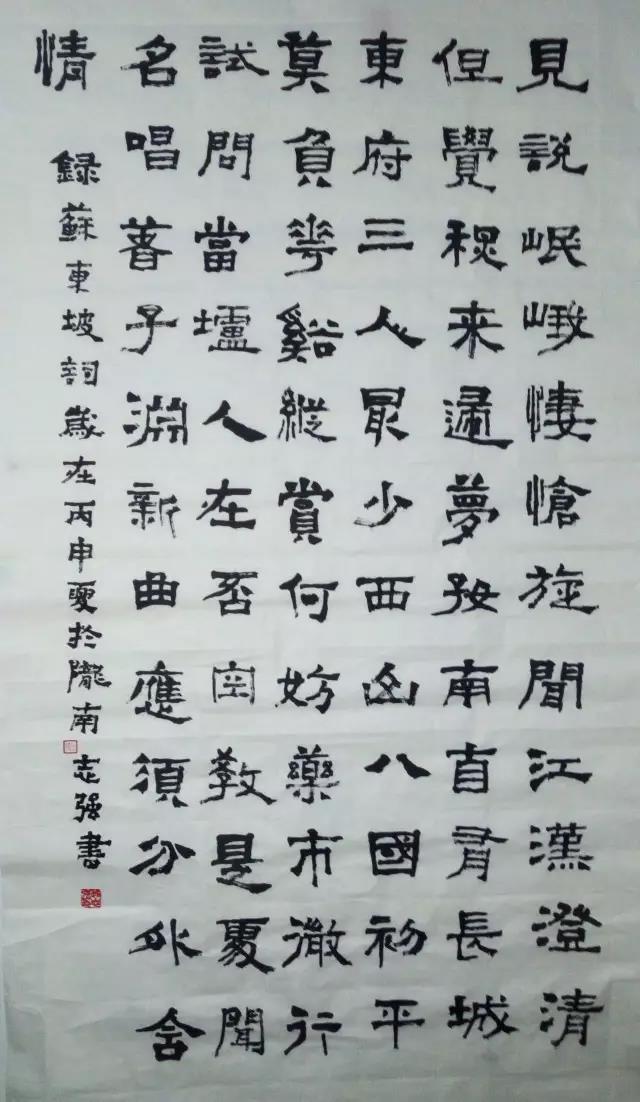 見說岷峨悽愴旋聞江漢澄清
但覺秋来歸夢好南自有長城
東府三人最少西山八國初平
莫負花谿縱賞何妨藥市微行
試問當壚人在否空教是處聞
名唱著子淵新曲應須分外含
情
録蘇東坡詞歲在丙申夏於隴南志强書